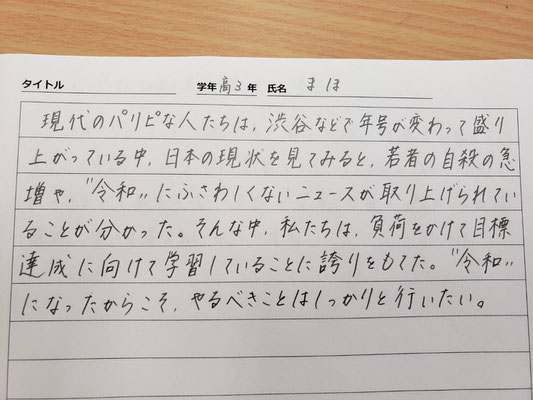 タイトル 学年 高3年 氏名 まほ
現代のパリピな人たちは、渋谷などで年号が変わって盛り
上がっている中、日本の現状を見てみると、若者の自殺の急
増や、〝令和〟にふさわしくないニュースが取り上げられてい
ることが分かった。そんな中、私たちは、負荷をかけて目標
達成に向けて学習していることに誇りをもてた。〝令和〟
になったからこそ、やるべきことはしっかりと行いたい。